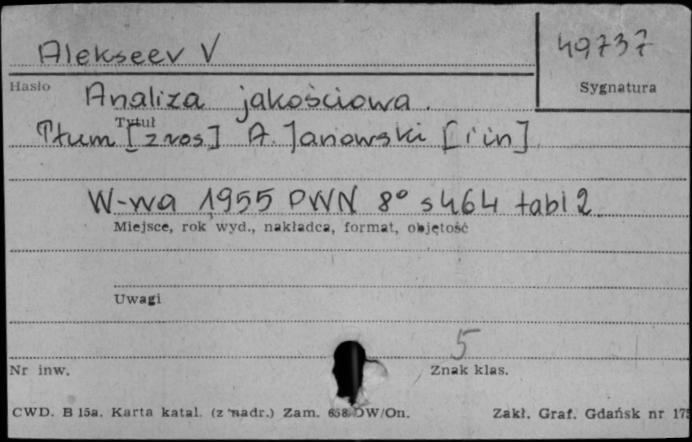 Alekseev V
49737
Hasło
Sygnatura
Analiza jakościowa.
Tytuł
Tłum [z ros] A. Janowski [i in]
W-wa 1955 PWN 8° s 464 tabl 2
Miejsce, rok wyd., nakładca, format, objętość
Uwagi
5
Nr inw.
Znak klas.
CWD. B 15a. Karta katal. (z nadr.) Zam. 658/DW/On.
Zakł. Graf. Gdańsk nr 175